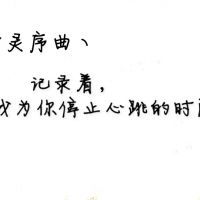 灵序曲丶
记录着,
我为你停止心跳的时